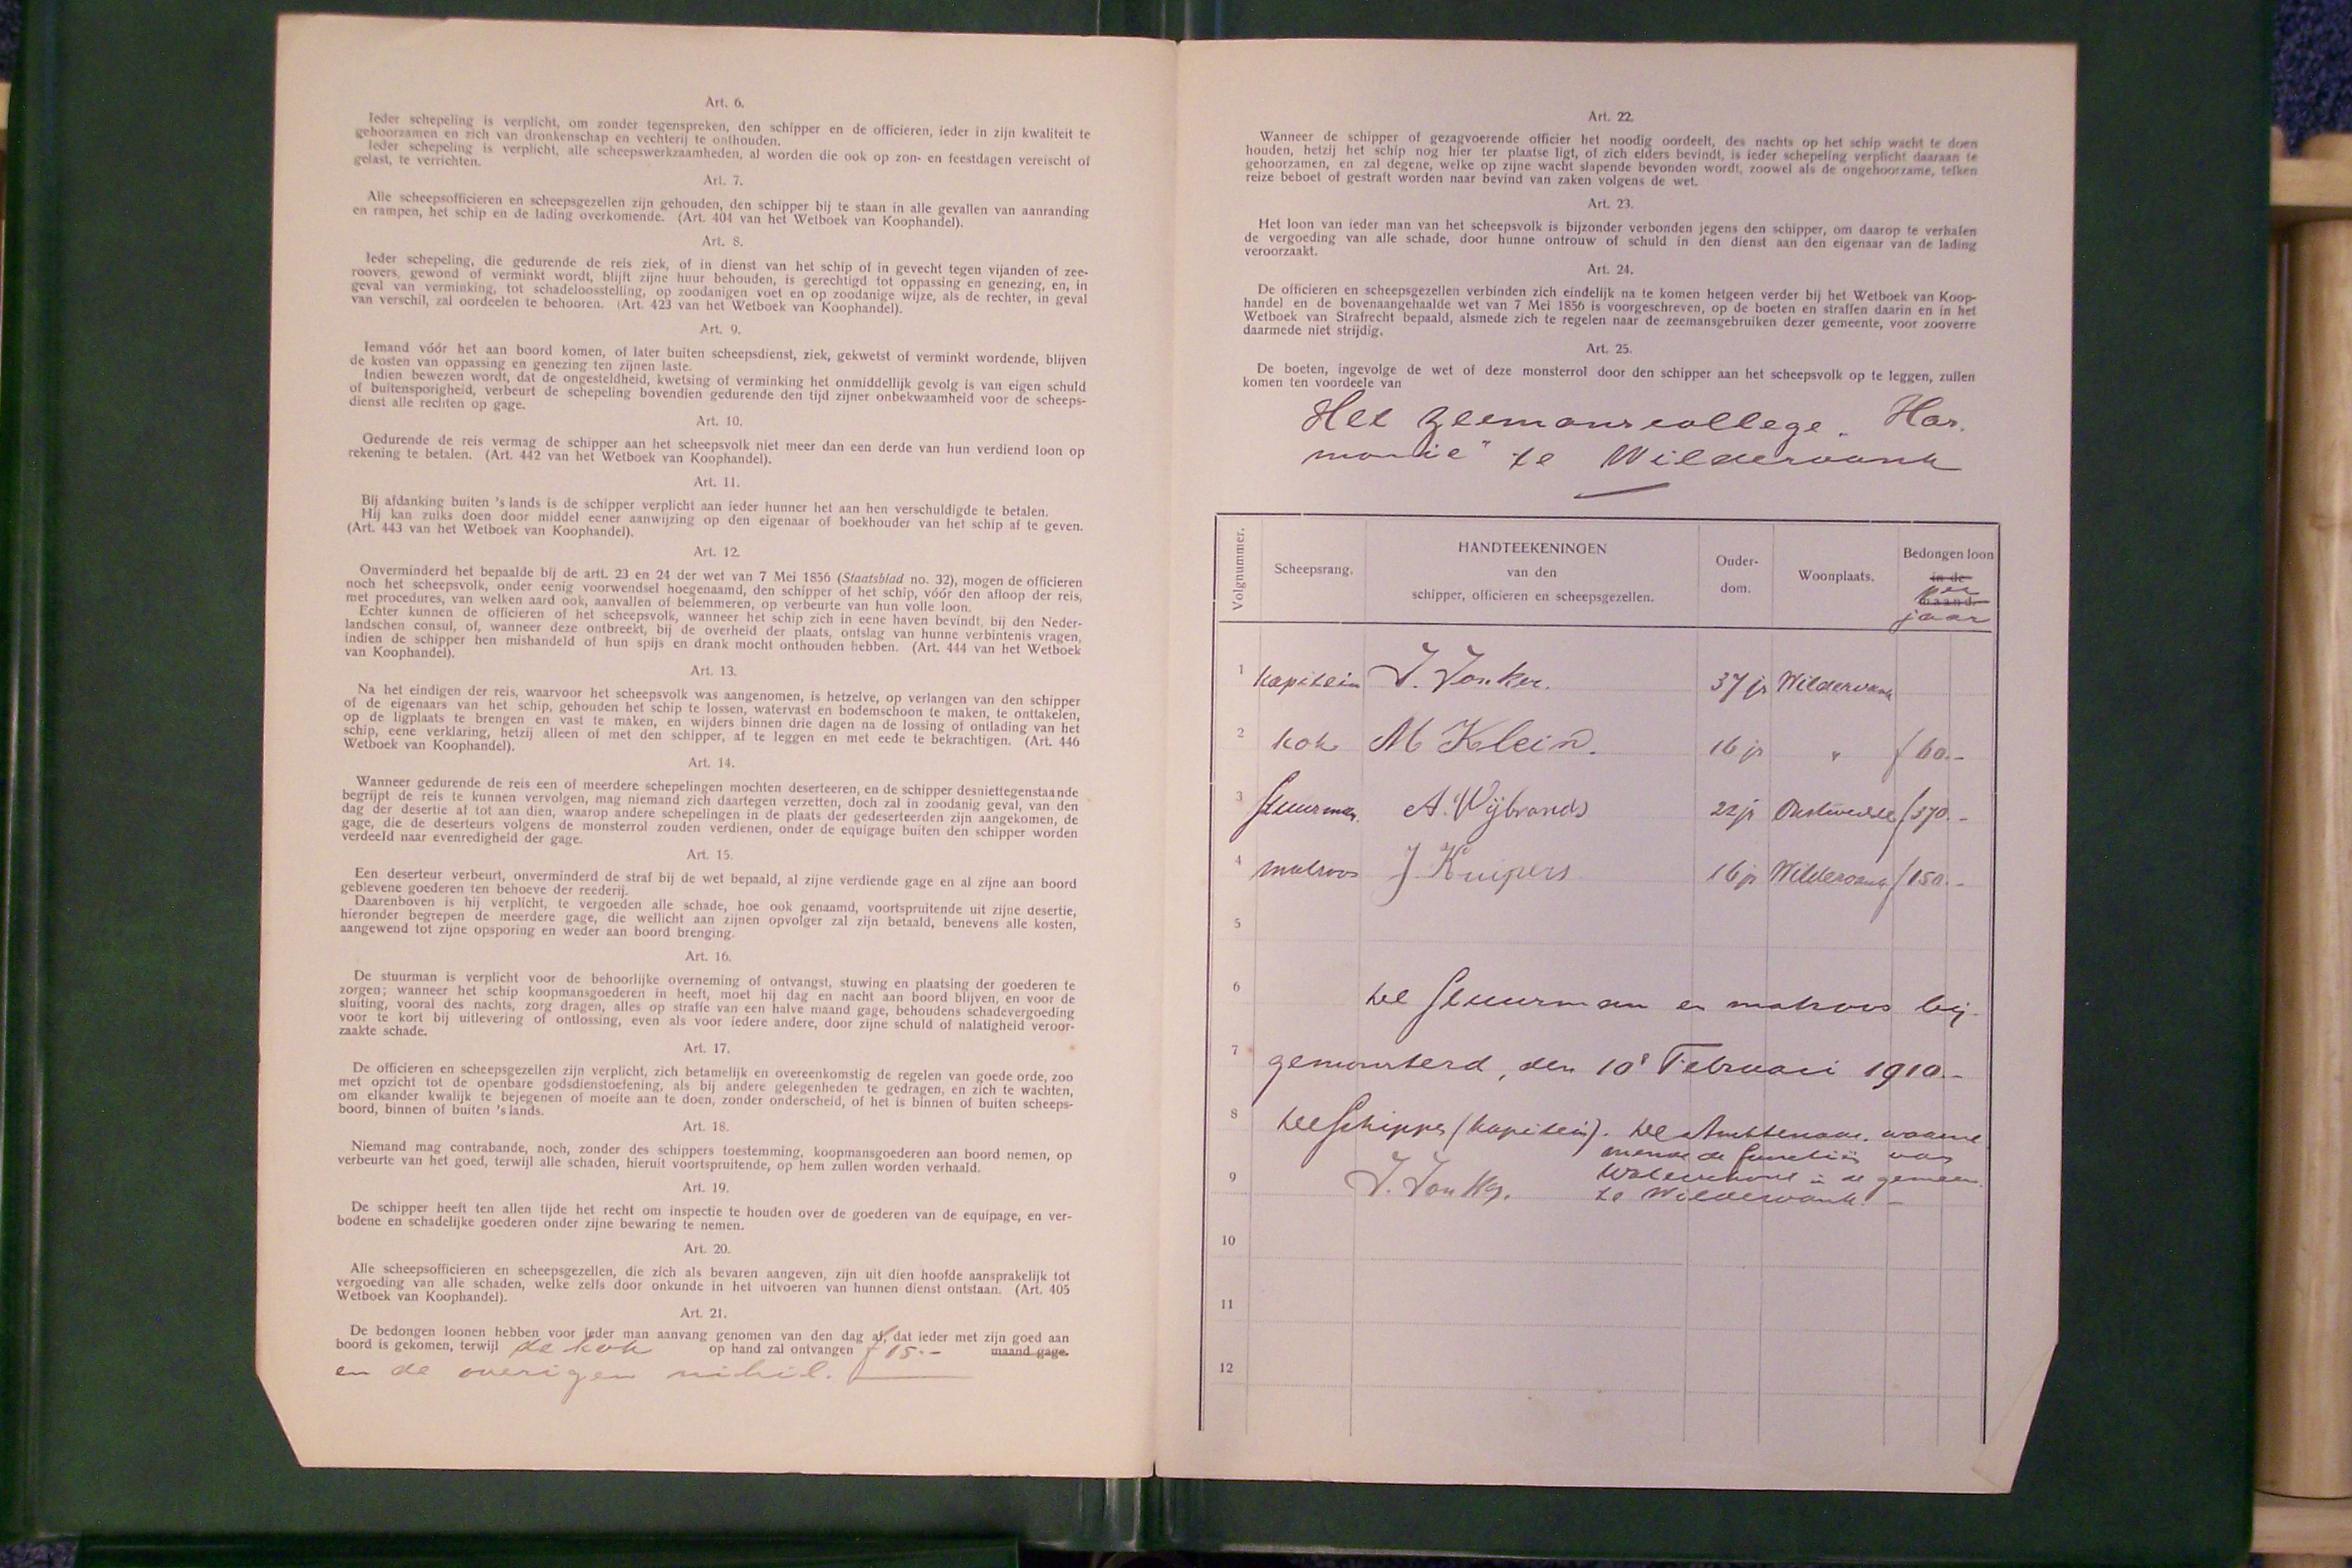 Art. 6.
Ieder schepeling is verplicht, om zonder tegenspreken, den schipper en de officieren, ieder in zijn kwaliteit te
gehoorzamen en zich van dronkenschap en vechterij te onthouden.
Ieder schepeling is verplicht, alle scheepswerkzaamheden, al worden die ook op zon- en feestdagen vereischt of
gelast, te verrichten.
Art. 7.
Alle scheepsofficieren en scheepsgezellen zijn gehouden, den schipper bij te staan in alle gevallen van aanranding
en rampen, het schip en de lading overkomende. (Art. 404 van het Wetboek van Koophandel).
Art. 8.
Ieder schepeling, die gedurende de reis ziek, of in dienst van het schip of in gevecht tegen vijanden of zee-
roovers, gewond of verminkt wordt, blijft zijne huur behouden, is gerechtigd tot oppassing en genezing, en, in
geval van verminking, tot schadeloosstelling, op zoodanigen voet en op zoodanige wijze, als de rechter, in geval
van verschil, zal oordeelen te behooren. (Art. 423 van het Wetboek van Koophandel).
Art. 9.
Iemand vóór het aan boord komen, of later buiten scheepsdienst, ziek, gekwetst of verminkt wordende, blijven
de kosten van oppassing en genezing ten zijnen laste.
Indien bewezen wordt, dat de ongesteldheid, kwetsing of verminking het onmiddellijk gevolg is van eigen schuld
of buitensporigheid, verbeurt de schepeling bovendien gedurende den tijd zijner onbekwaamheid voor de scheeps-
dienst alle rechten op gage.
Art. 10.
Gedurende de reis vermag de schipper aan het scheepsvolk niet meer dan een derde van hun verdiend loon op
rekening te betalen. (Art. 442 van het Wetboek van Koophandel).
Art. 11.
Bij afdanking buiten 's lands is de schipper verplicht aan ieder hunner het aan hen verschuldigde te betalen.
Hij kan zulks doen door middel eener aanwijzing op den eigenaar of boekhouder van het schip af te geven.
(Art. 443 van het Wetboek van Koophandel).
Art. 12.
Onverminderd het bepaalde bij de artt. 23 en 24 der wet van 7 Mei 1856 (Staatsblad no. 32), mogen de officieren
noch het scheepsvolk, onder eenig voorwendsel hoegenaamd, den schipper of het schip, vóór den afloop der reis,
met procedures, van welken aard ook, aanvallen of belemmeren, op verbeurte van hun volle loon.
Echter kunnen de officieren of het scheepsvolk, wanneer het schip zich in eene haven bevindt, bij den Neder-
landschen consul, of, wanneer deze ontbreekt, bij de overheid der plaats, ontslag van hunne verbintenis vragen,
indien de schipper hen mishandeld of hun spijs en drank mocht onthouden hebben. (Art. 444 van het Wetboek
van Koophandel).
Art. 13.
Na het eindigen der reis, waarvoor het scheepsvolk was aangenomen, is hetzelve, op verlangen van den schipper
of de eigenaars van het schip, gehouden het schip te lossen, watervast en bodemschoon te maken, te onttakelen,
op de ligplaats te brengen en vast te maken, en wijders binnen drie dagen na de lossing of ontlading van het
schip, eene verklaring, hetzij alleen of met den schipper, af te leggen en met eede te bekrachtigen. (Art. 446
Wetboek van Koophandel).
Art. 14.
Wanneer gedurende de reis een of meerdere schepelingen mochten deserteeren, en de schipper desniettegenstaande
begrijpt de reis te kunnen vervolgen, mag niemand zich daartegen verzetten, doch zal in zoodanig geval, van den
dag der desertie af tot aan dien, waarop andere schepelingen in de plaats der gedeserteerden zijn aangekomen, de
gage, die de deserteurs volgens de monsterrol zouden verdienen, onder de equigage buiten den schipper worden
verdeeld naar evenredigheid der gage.
Art. 15.
Een deserteur verbeurt, onverminderd de straf bij de wet bepaald, al zijne verdiende gage en al zijne aan boord
geblevene goederen ten behoeve der reederij.
Daarenboven is hij verplicht, te vergoeden alle schade, hoe ook genaamd, voortspruitende uit zijne desertie,
hieronder begrepen de meerdere gage, die wellicht aan zijnen opvolger zal zijn betaald, benevens alle kosten,
aangewend tot zijne opsporing en weder aan boord brenging.
Art. 16.
De stuurman is verplicht voor de behoorlijke overneming of ontvangst, stuwing en plaatsing der goederen te
zorgen; wanneer het schip koopmansgoederen in heeft, moet hij dag en nacht aan boord blijven, en voor de
sluiting, vooral des nachts, zorg dragen, alles op straffe van een halve maand gage, behoudens schadevergoeding
voor te kort bij uitlevering of ontlossing, even als voor iedere andere, door zijne schuld of nalatigheid veroor-
zaakte schade.
Art. 17.
De officieren en scheepsgezellen zijn verplicht, zich betamelijk en overeenkomstig de regelen van goede orde, zoo
met opzicht tot de openbare godsdienstoefening, als bij andere gelegenheden te gedragen, en zich te wachten,
om elkander kwalijk te bejegenen of moeite aan te doen, zonder onderscheid, of het is binnen of buiten scheeps-
boord, binnen of buiten 's lands.
Art. 18.
Niemand mag contrabande, noch, zonder des schippers toestemming, koopmansgoederen aan boord nemen, op
verbeurte van het goed, terwijl alle schaden, hieruit voortspruitende, op hem zullen worden verhaald.
Art. 19.
De schipper heeft ten allen tijde het recht om inspectie te houden over de goederen van de equipage, en ver-
bodene en schadelijke goederen onder zijne bewaring te nemen.
Art. 20.
Alle scheepsofficieren en scheepsgezellen, die zich als bevaren aangeven, zijn uit dien hoofde aansprakelijk tot
vergoeding van alle schaden, welke zelfs door onkunde in het uitvoeren van hunnen dienst ontstaan. (Art. 405
Wetboek van Koophandel).
Art. 21.
De bedongen loonen hebben voor ieder man aanvang genomen van den dag af, dat ieder met zijn goed aan
boord is gekomen, terwijl de kok op hand zal ontvangen f 15.- maand gage.
en de overigen nihil.
Art. 22.
Wanneer de schipper of gezagvoerende officier het noodig oordeelt, des nachts op het schip wacht te doen
houden, hetzij het schip nog hier ter plaatse ligt, of zich elders bevindt, is ieder schepeling verplicht daaraan te
gehoorzamen, en zal degene, welke op zijne wacht slapende bevonden wordt, zoowel als de ongehoorzame, telken
reize beboet of gestraft worden naar bevind van zaken volgens de wet.
Art. 23.
Het loon van ieder man van het scheepsvolk is bijzonder verbonden jegens den schipper, om daarop te verhalen
de vergoeding van alle schade, door hunne ontrouw of schuld in den dienst aan den eigenaar van de lading
veroorzaakt.
Art. 24.
De officieren en scheepsgezellen verbinden zich eindelijk na te komen hetgeen verder bij het Wetboek van Koop-
handel en de bovenaangehaalde wet van 7 Mei 1856 is voorgeschreven, op de boeten en straffen daarin en in het
Wetboek van Strafrecht bepaald, alsmede zich te regelen naar de zeemansgebruiken dezer gemeente, voor zooverre
daarmede niet strijdig.
Art. 25.
De boeten, ingevolge de wet of deze monsterrol door den schipper aan het scheepsvolk op te leggen, zullen
komen ten voordeele van
Het zeemanscollege „Har-
monie" te Wildervank
Volgnummer. Scheepsrang. HANDTEEKENINGEN van den schipper, officieren en scheepsgezellen. Ouder-dom. Woonplaats. Bedongen loon in de maand. per jaar
1 kapitein J. Jonker. 37 jr Wildervank
2 kok M Klein. 16 jr " f 60.-
3 stuurman A. Wijbrands 22 jr Onstwedde f 370.-
4 matroos J. Kuipers 16 jr Wildervank f 150.-
5
6 De stuurman en matroos bij-
7 gemonsterd, den 10e Februari 1910.-
8 De Schipper (kapitein). De Ambtenaar, waarne-
mende de functiën van
Waterschout in de gemeen-
9 J. Jonker. te Wildervank. -
10
11
12